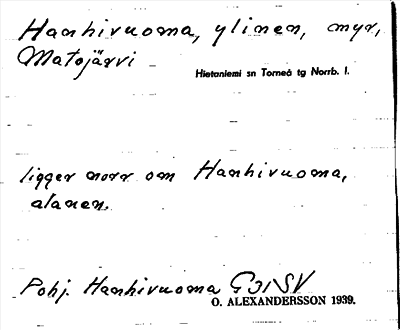 Hanhivuoma, ylinen, myr,
Matojärvi
Hietaniemi sn Torneå tg Norrb. l.
ligger norr om Hanhivuoma,
alanen.
Pohj. Hanhivuoma G 31 SV
O. ALEXANDERSSON 1939.